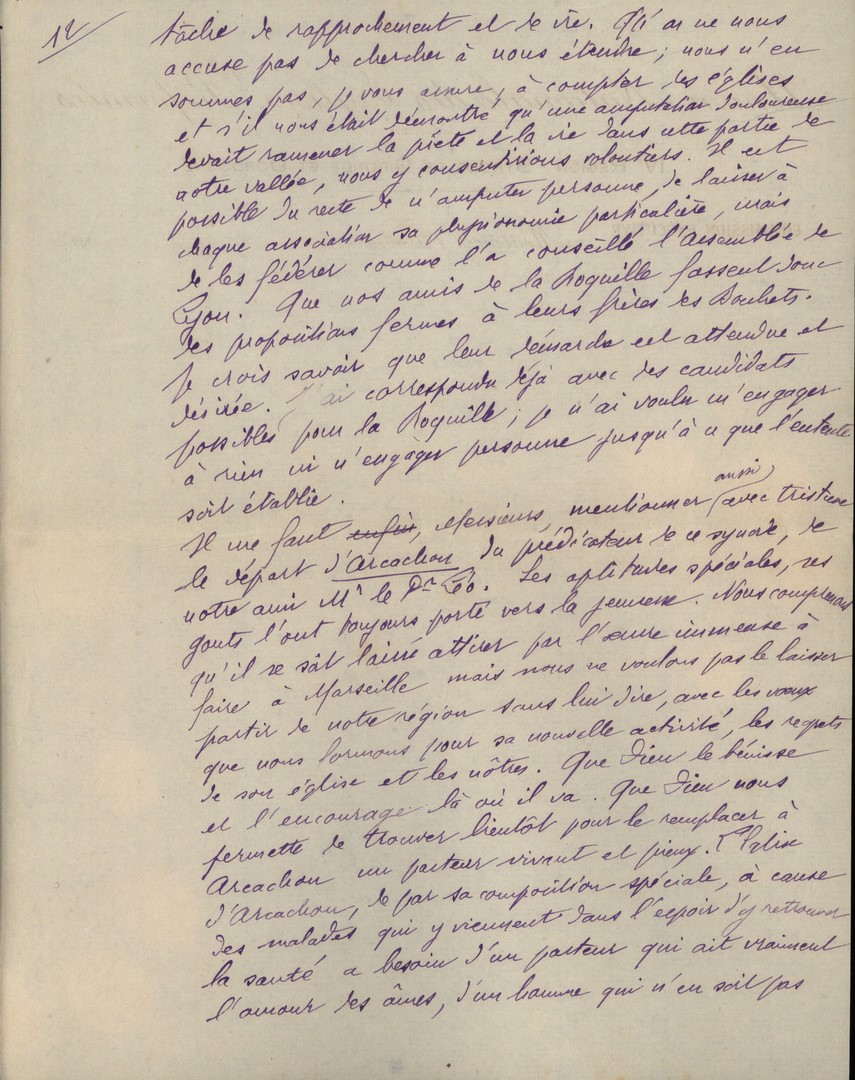 12
tâche de rapprochement et de vie. Qu'on ne nous
accuse pas de chercher à nous étendre ; nous n'en
sommes pas, je vous assure, à compter les églises
et s'il nous était démontré qu'une amputation douloureuse
devait ramener la piété et la vie dans cette partie de
notre vallée, nous y consentirions volontiers. Il est
possible du reste de n'amputer personne, de laisser à
chaque association sa physionomie particulière, mais
de les fédérer comme l'a conseillé l'Assemblée de
Lyon. Que nos amis de la Roquille fassent donc
des propositions fermes à leurs frères des Bouhets.
Je crois savoir que leur démarche est attendue et
désirée. J'ai correspondu déjà avec des candidats
possibles pour la Roquille ; je n'ai voulu m'engager
à rien ni n'engager personne jusqu'à ce que l'entente
soit établie.
Il me faut enfin, Messieurs, mentionner aussi avec tristesse
le départ d'Arcachon du prédicateur de ce synode, de
notre ami Mr le Dr Léo. Les aptitudes spéciales, ses
gouts l'ont toujours porté vers la jeunesse. Nous comprenons
qu'il se soit laissé attirer par l'œuvre immense à
faire à Marseille mais nous ne voulons pas le laisser
partir de notre région sans lui dire, avec les vœux
que nous formons pour sa nouvelle activité, les regrets
de son église et les nôtres. Que Dieu le bénisse
et l'encourage là où il va. Que Dieu nous
permette de trouver bientôt pour le remplacer à
Arcachon un pasteur vivant et pieux. L'Eglise
d'Arcachon, de par sa composition spéciale, à cause
des malades qui y viennent dans l'espoir d'y retrouver
la santé a besoin d'un pasteur qui ait vraiment
l'amour des âmes, d'un homme qui n'en soit pas